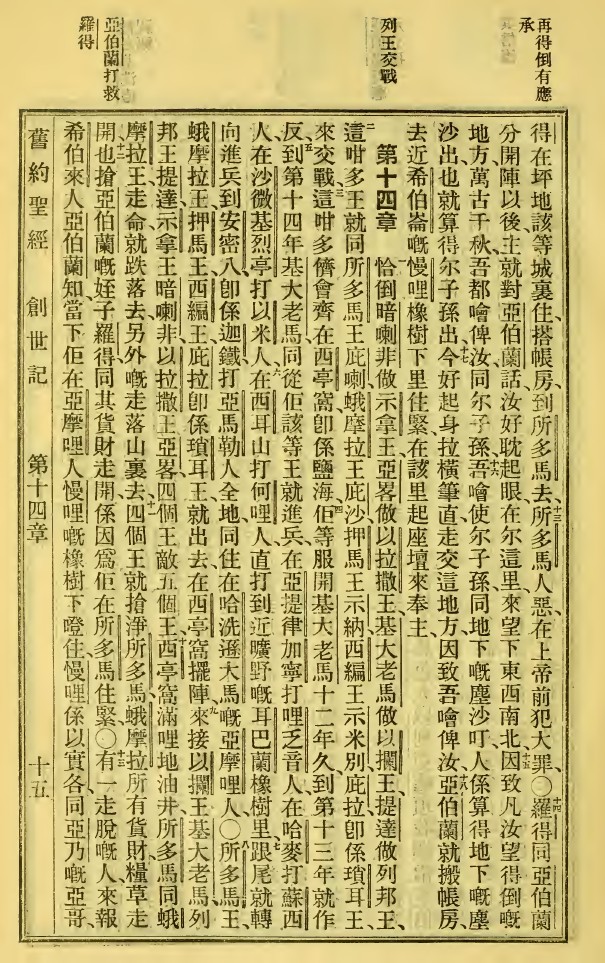 再得倒有應
承
列王交戰
亞伯蘭打救
羅得
得在坪地該等城裏住、搭帳房、到所多馬去、十三所多馬人惡在上帝前犯大罪○十四羅得同亞伯蘭
分開陣以後、主就對亞伯蘭話、汝好耽起眼在尔這里、來望下東西南北、十五因致凡汝望得倒嘅
地方萬古千秋、吾都噲俾汝、同尔子孫、十六吾噲使尔子孫同地下嘅塵沙、叮人係算得地下嘅塵
沙出也就算得尔子孫出、十七今好起身拉橫筆直走交這地方、因致吾噲俾汝、十八亞伯蘭就搬帳房、
去近希伯崙嘅慢哩橡樹下里住緊、在該里起座壇來奉主、
第十四章 一恰倒暗喇非做示拿王、亞畧做以拉撒王、基大老馬做以攔王、提達做列邦王、
二這咁多王就同所多馬王庇喇、蛾摩拉王庇沙、押馬王示納、西編王示米別、庇拉卽係瑣耳王、
來交戰、三這咁多儕會齊在西亭窩卽係鹽海、四佢等服開基大老馬十二年久、到第十三年就作
反、五到第十四年基大老馬同從佢該等王就進兵、在亞提律加寧打哩乏音人、在哈麥打蘇西
人、在沙微基烈亭打以米人、六在西耳山打何哩人、直打到近曠野嘅耳巴蘭橡樹里、七跟尾就轉
向進兵到安密八卽係迦鐵、打亞馬勒人全地、同住在哈洗遜大馬嘅亞摩哩人○八所多馬王、
蛾摩拉王、押馬王、西編王、庇拉卽係瑣耳王、就出去在西亭窩擺陣、九來接以攔王基大老馬、列
邦王提達、示拿王暗喇非、以拉撒王亞畧、四個王敵五個王、十西亭窩滿哩地油井、所多馬同蛾
摩拉王走命、就跌落去、另外嘅走落山裏去、十一四個王就搶淨所多馬蛾摩拉所有貨財糧草走
開也、十二搶亞伯蘭嘅姪子羅得同其貨財走開、係因爲佢在所多馬住緊○十三有一走脫嘅人、來報
希伯來人亞伯蘭知、當下佢在亞摩哩人慢哩嘅橡樹下噔住、慢哩係以實各同亞乃嘅亞哥、
舊約聖經 創世記 第十四章 十五